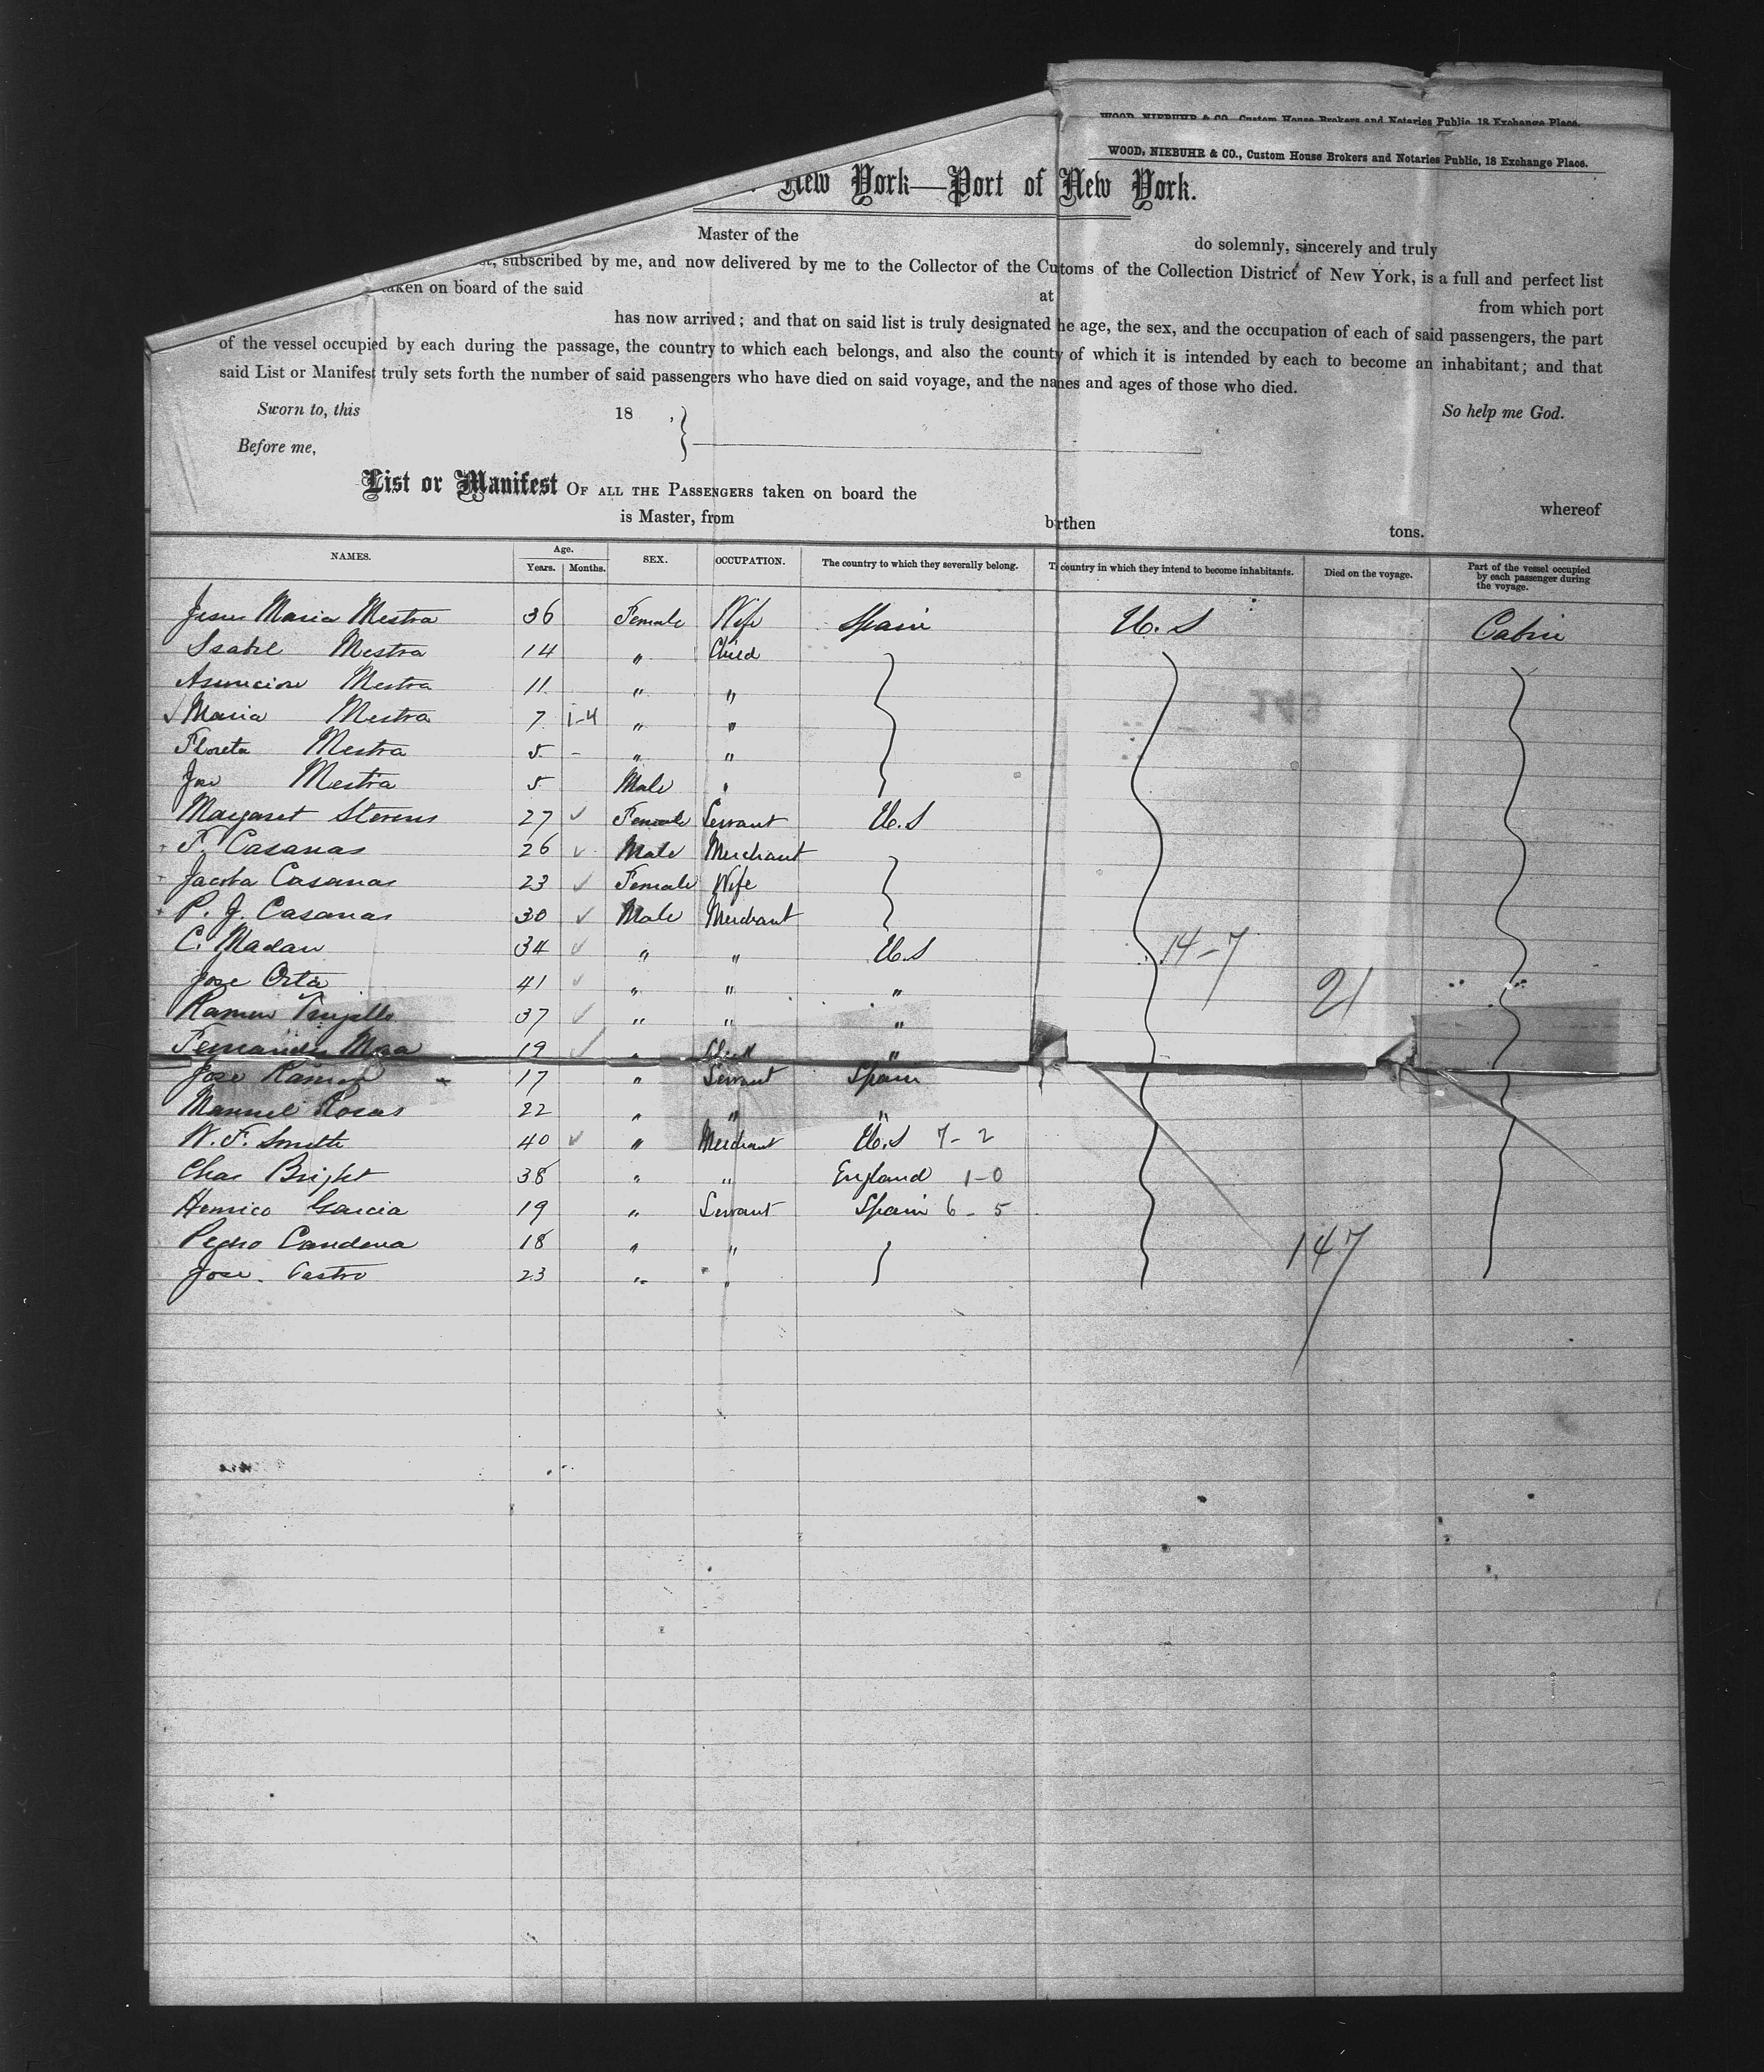 WOOD, NIEBUHR & CO., Custom House Brokers and Notaries Public, 18 Exchange Place.
WOOD, NIEBUHR & CO., Custom House Brokers and Notaries Public, 18 Exchange Place.
New York—Port of New York.
Master of the do solemnly, sincerely and truly
subscribed by me, and now delivered by me to the Collector of the Cutoms of the Collection District of New York, is a full and perfect list
taken on board of the said at from which port
has now arrived; and that on said list is truly designated he age, the sex, and the occupation of each of said passengers, the part
of the vessel occupied by each during the passage, the country to which each belongs, and also the county of which it is intended by each to become an inhabitant; and that
said List or Manifest truly sets forth the number of said passengers who have died on said voyage, and the names and ages of those who died.
Sworn to, this 18 , So help me God.
Before me,
List or Manifest OF ALL THE PASSENGERS taken on board the whereof
is Master, from brthen tons.
NAMES. Age. Years. Months. SEX. OCCUPATION. The country to which they severally belong. T country in which they intend to become inhabitants. Died on the voyage. Part of the vessel occupied by each passenger during the voyage.
Jesus Maria Mestra 36 Female Wife Spain U.S Cabin
Isabel Mestra 14 " Child
Asuncion Mestra 11 " "
Maria Mestra 7 1-4 " "
Floreta Mestra 5 - " "
Jose Mestra 5 Male "
Margaret Stevens 27 Female Servant U.S
F. Casanas 26 Male Merchant
Jacoba Casanas 23 Female Wife
P. J. Casanas 30 Male Merchant
C. Madan 34 " " U.S 14-7
Jose Orta 41 " " " 21
Ramon Trujillo 37 " " "
Fernandez Maa 19 " Clerk "
Jose Ramon 17 " Servant Spain
Manuel Rosas 22 " " "
W. F. Smith 40 " Merchant U.S 7-2
Chas Bright 38 " " England 1-0
Henrico Garcia 19 " Servant Spain 6-5
Pedro Candena 18 " " 147
Jose Castro 23 " "